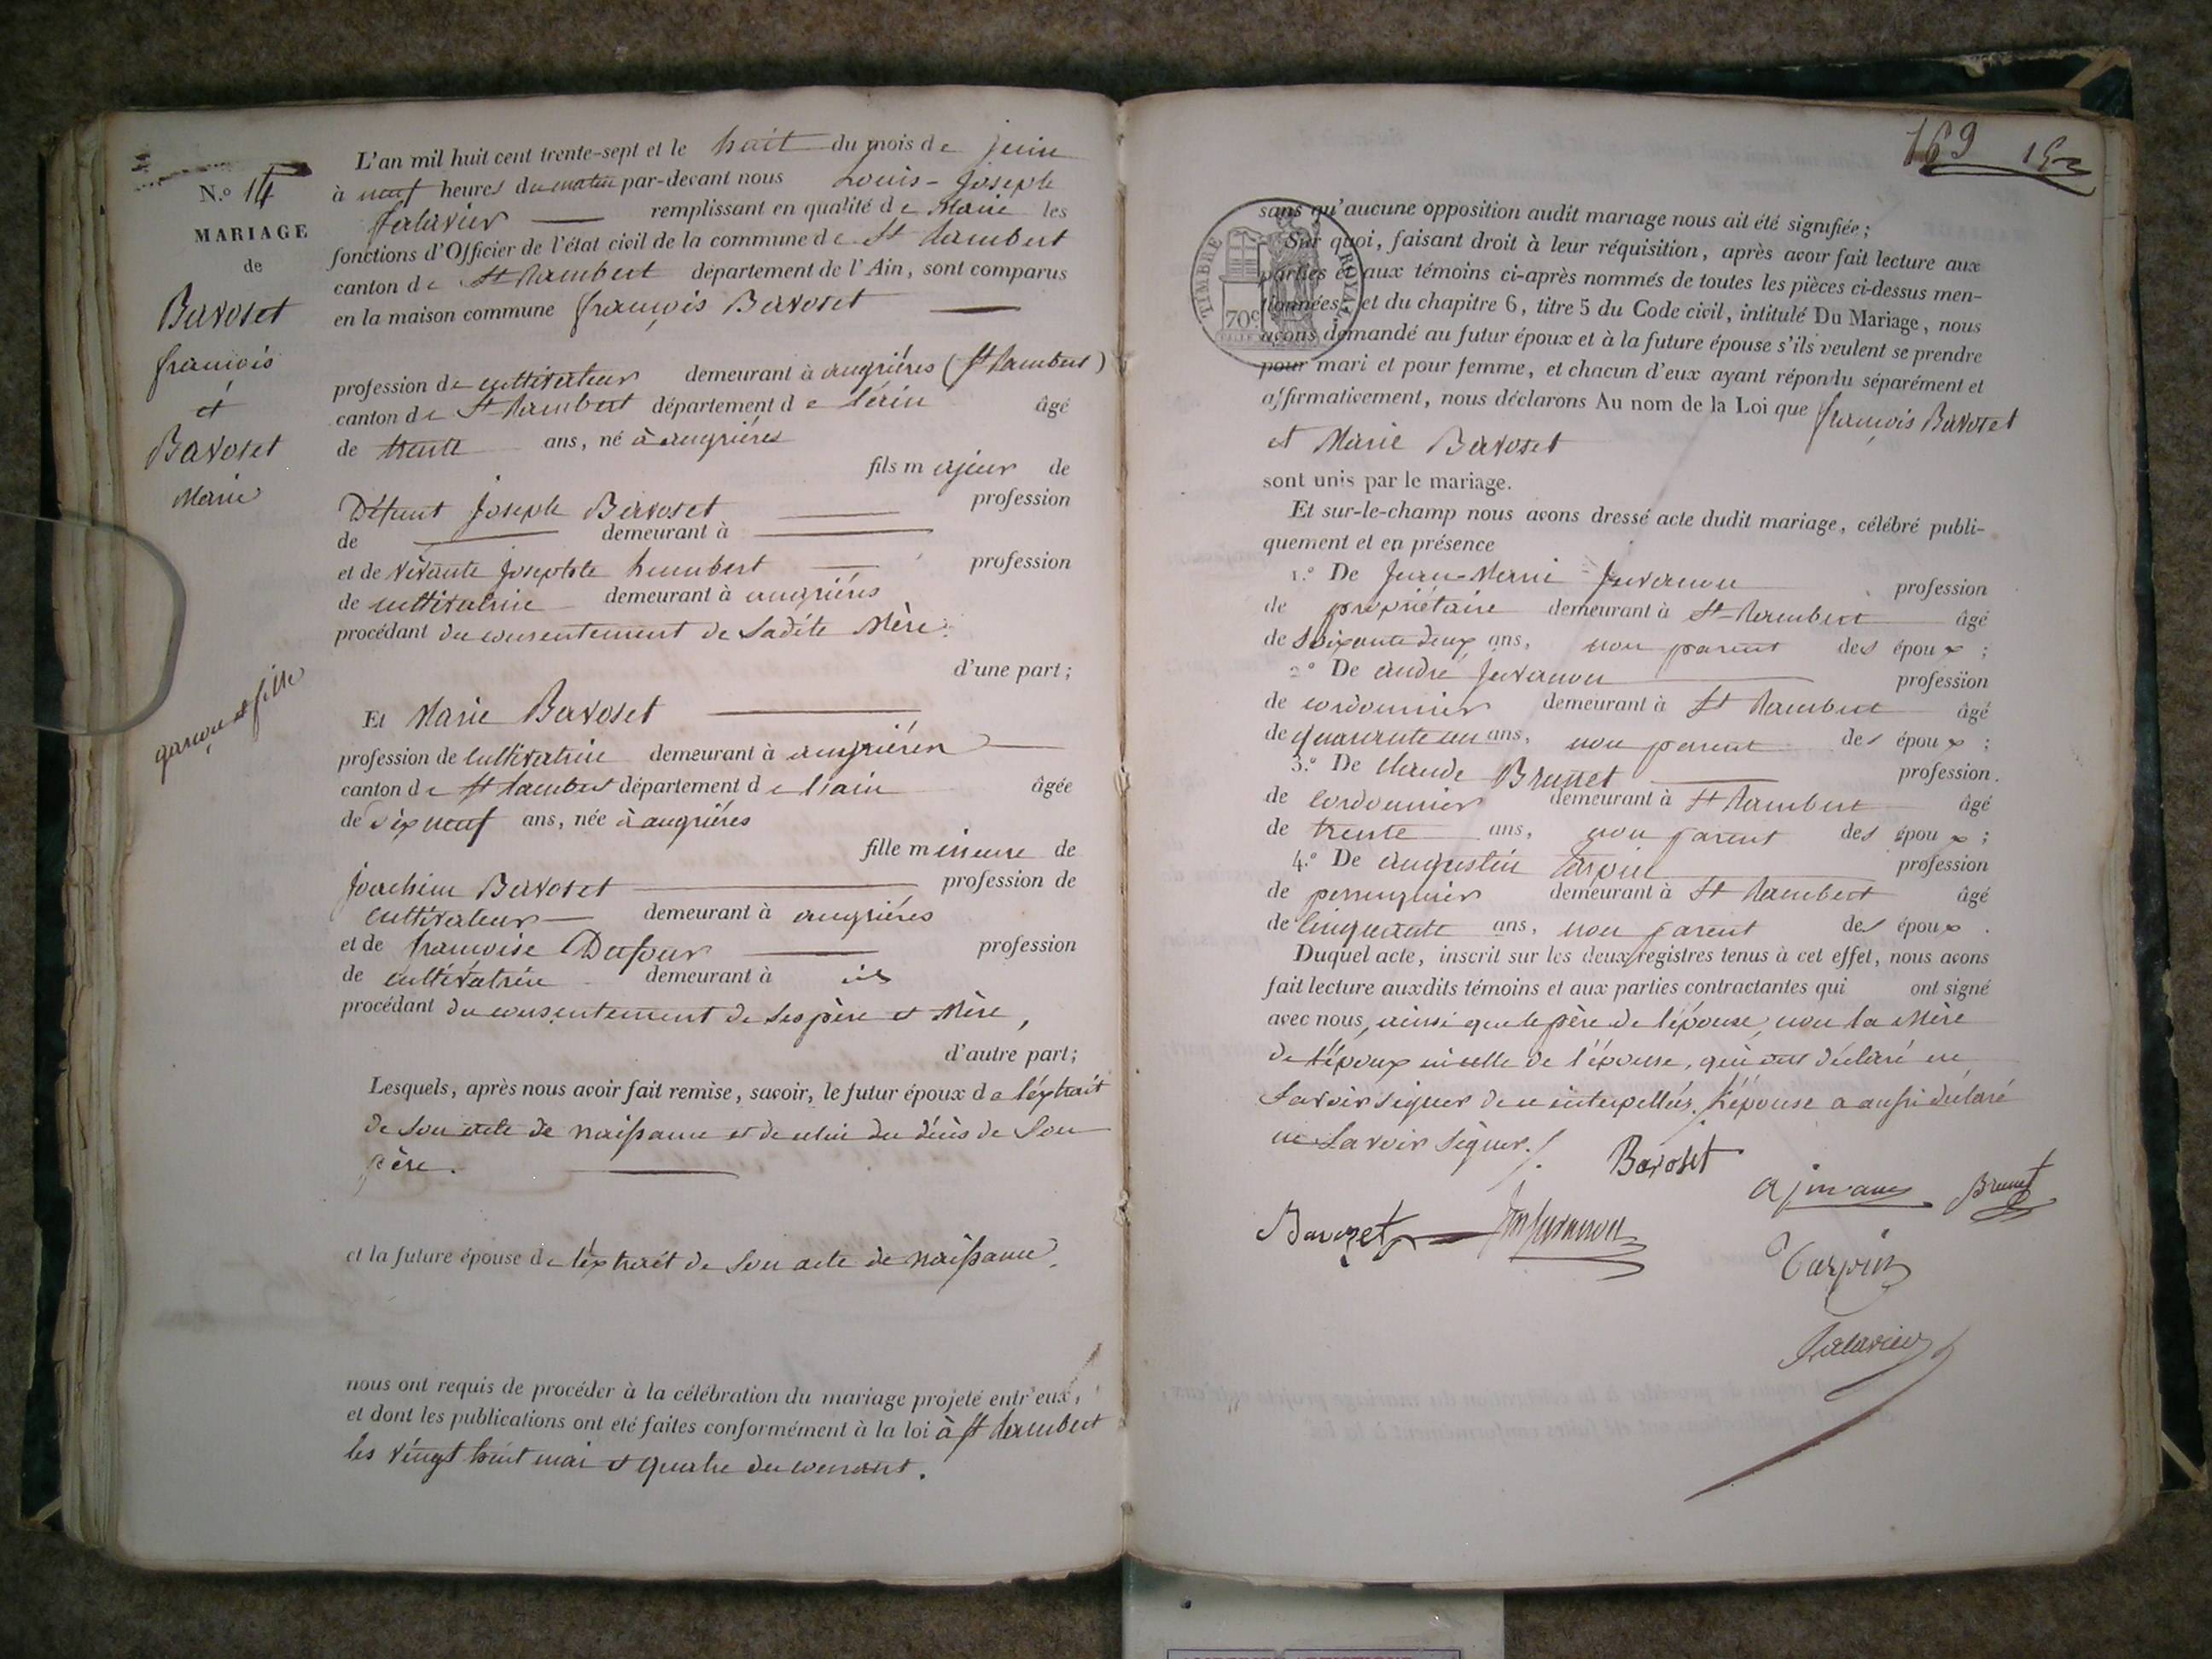 N.º 14
MARIAGE
de
Bavoset
françois
et
Bavoset
Marie
garçon et fille
L'an mil huit cent trente-sept et le huit du mois de juin
à neuf heures du matin par-devant nous Louis-Joseph
falavier remplissant en qualité de Maire les
fonctions d'Officier de l'état civil de la commune de St Rambert
canton de St Rambert département de l'Ain, sont comparus
en la maison commune françois Bavoset
profession de cultivateur demeurant à angriéres (St Rambert)
canton de St Rambert département de l'ain âgé
de trente ans, né à angriéres
fils majeur de
Défunt Joseph Bavoset profession
de demeurant à
et de vivante Josephte humbert profession
de cultivatrice demeurant à angriéres
procédant du consentement de Sadite Mère.
d'une part;
Et Marie Bavoset
profession de cultivatrice demeurant à angriéres
canton de St Rambert département de l'ain âgée
de dix neuf ans, née à angriéres
fille mineure de
Joachim Bavoset profession de
cultivateur demeurant à angriéres
et de françoise Dufour profession
de cultivatrice demeurant à
procédant du consentement de Ses père et Mère,
d'autre part;
Lesquels, après nous avoir fait remise, savoir, le futur époux de l'éxtrait
de Son acte de naissance et de celui du décès de Son
père.
et la future épouse de l'éxtrait de Son acte de naissance.
nous ont requis de procéder à la célébration du mariage projeté entr'eux,
et dont les publications ont été faites conformément à la loi à St Rambert
les vingt huit mai et quatre du courant.
169
TIMBRE ROYAL
70 c
sans qu'aucune opposition audit mariage nous ait été signifiée;
Sur quoi, faisant droit à leur réquisition, après avoir fait lecture aux
parties et aux témoins ci-après nommés de toutes les pièces ci-dessus men-
tionnées, et du chapitre 6, titre 5 du Code civil, intitulé Du Mariage, nous
avons demandé au futur époux et à la future épouse s'ils veulent se prendre
pour mari et pour femme, et chacun d'eux ayant répondu séparément et
affirmativement, nous déclarons Au nom de la Loi que françois Bavoset
et Marie Bavoset
sont unis par le mariage.
Et sur-le-champ nous avons dressé acte dudit mariage, célébré publi-
quement et en présence
1.º De Jean-Marie Juvanon profession
de propriétaire demeurant à St-Rambert âgé
de Soixante deux ans, non parent des époux;
2º De andré Juvanon profession
de cordonnier demeurant à St Rambert âgé
de quarante un ans, non parent des époux;
3.º De Claude Brunet profession.
de cordonnier demeurant à St Rambert âgé
de trente ans, non parent des époux;
4.º De augustin Carpin profession
de perruquier demeurant à St Rambert âgé
de Cinquante ans, non parent des époux.
Duquel acte, inscrit sur les deux registres tenus à cet effet, nous avons
fait lecture auxdits témoins et aux parties contractantes qui ont signé
avec nous, ainsi que le père de l'épouse, non la Mère
de l'époux ni celle de l'épouse, qui ont déclaré ne
Savoir signer de ce interpellés. L'épouse a aussi déclaré
ne Savoir Signer./.
Bavoset
Brunet
Bavozet
Jm Juvanon
Carpin
falavier